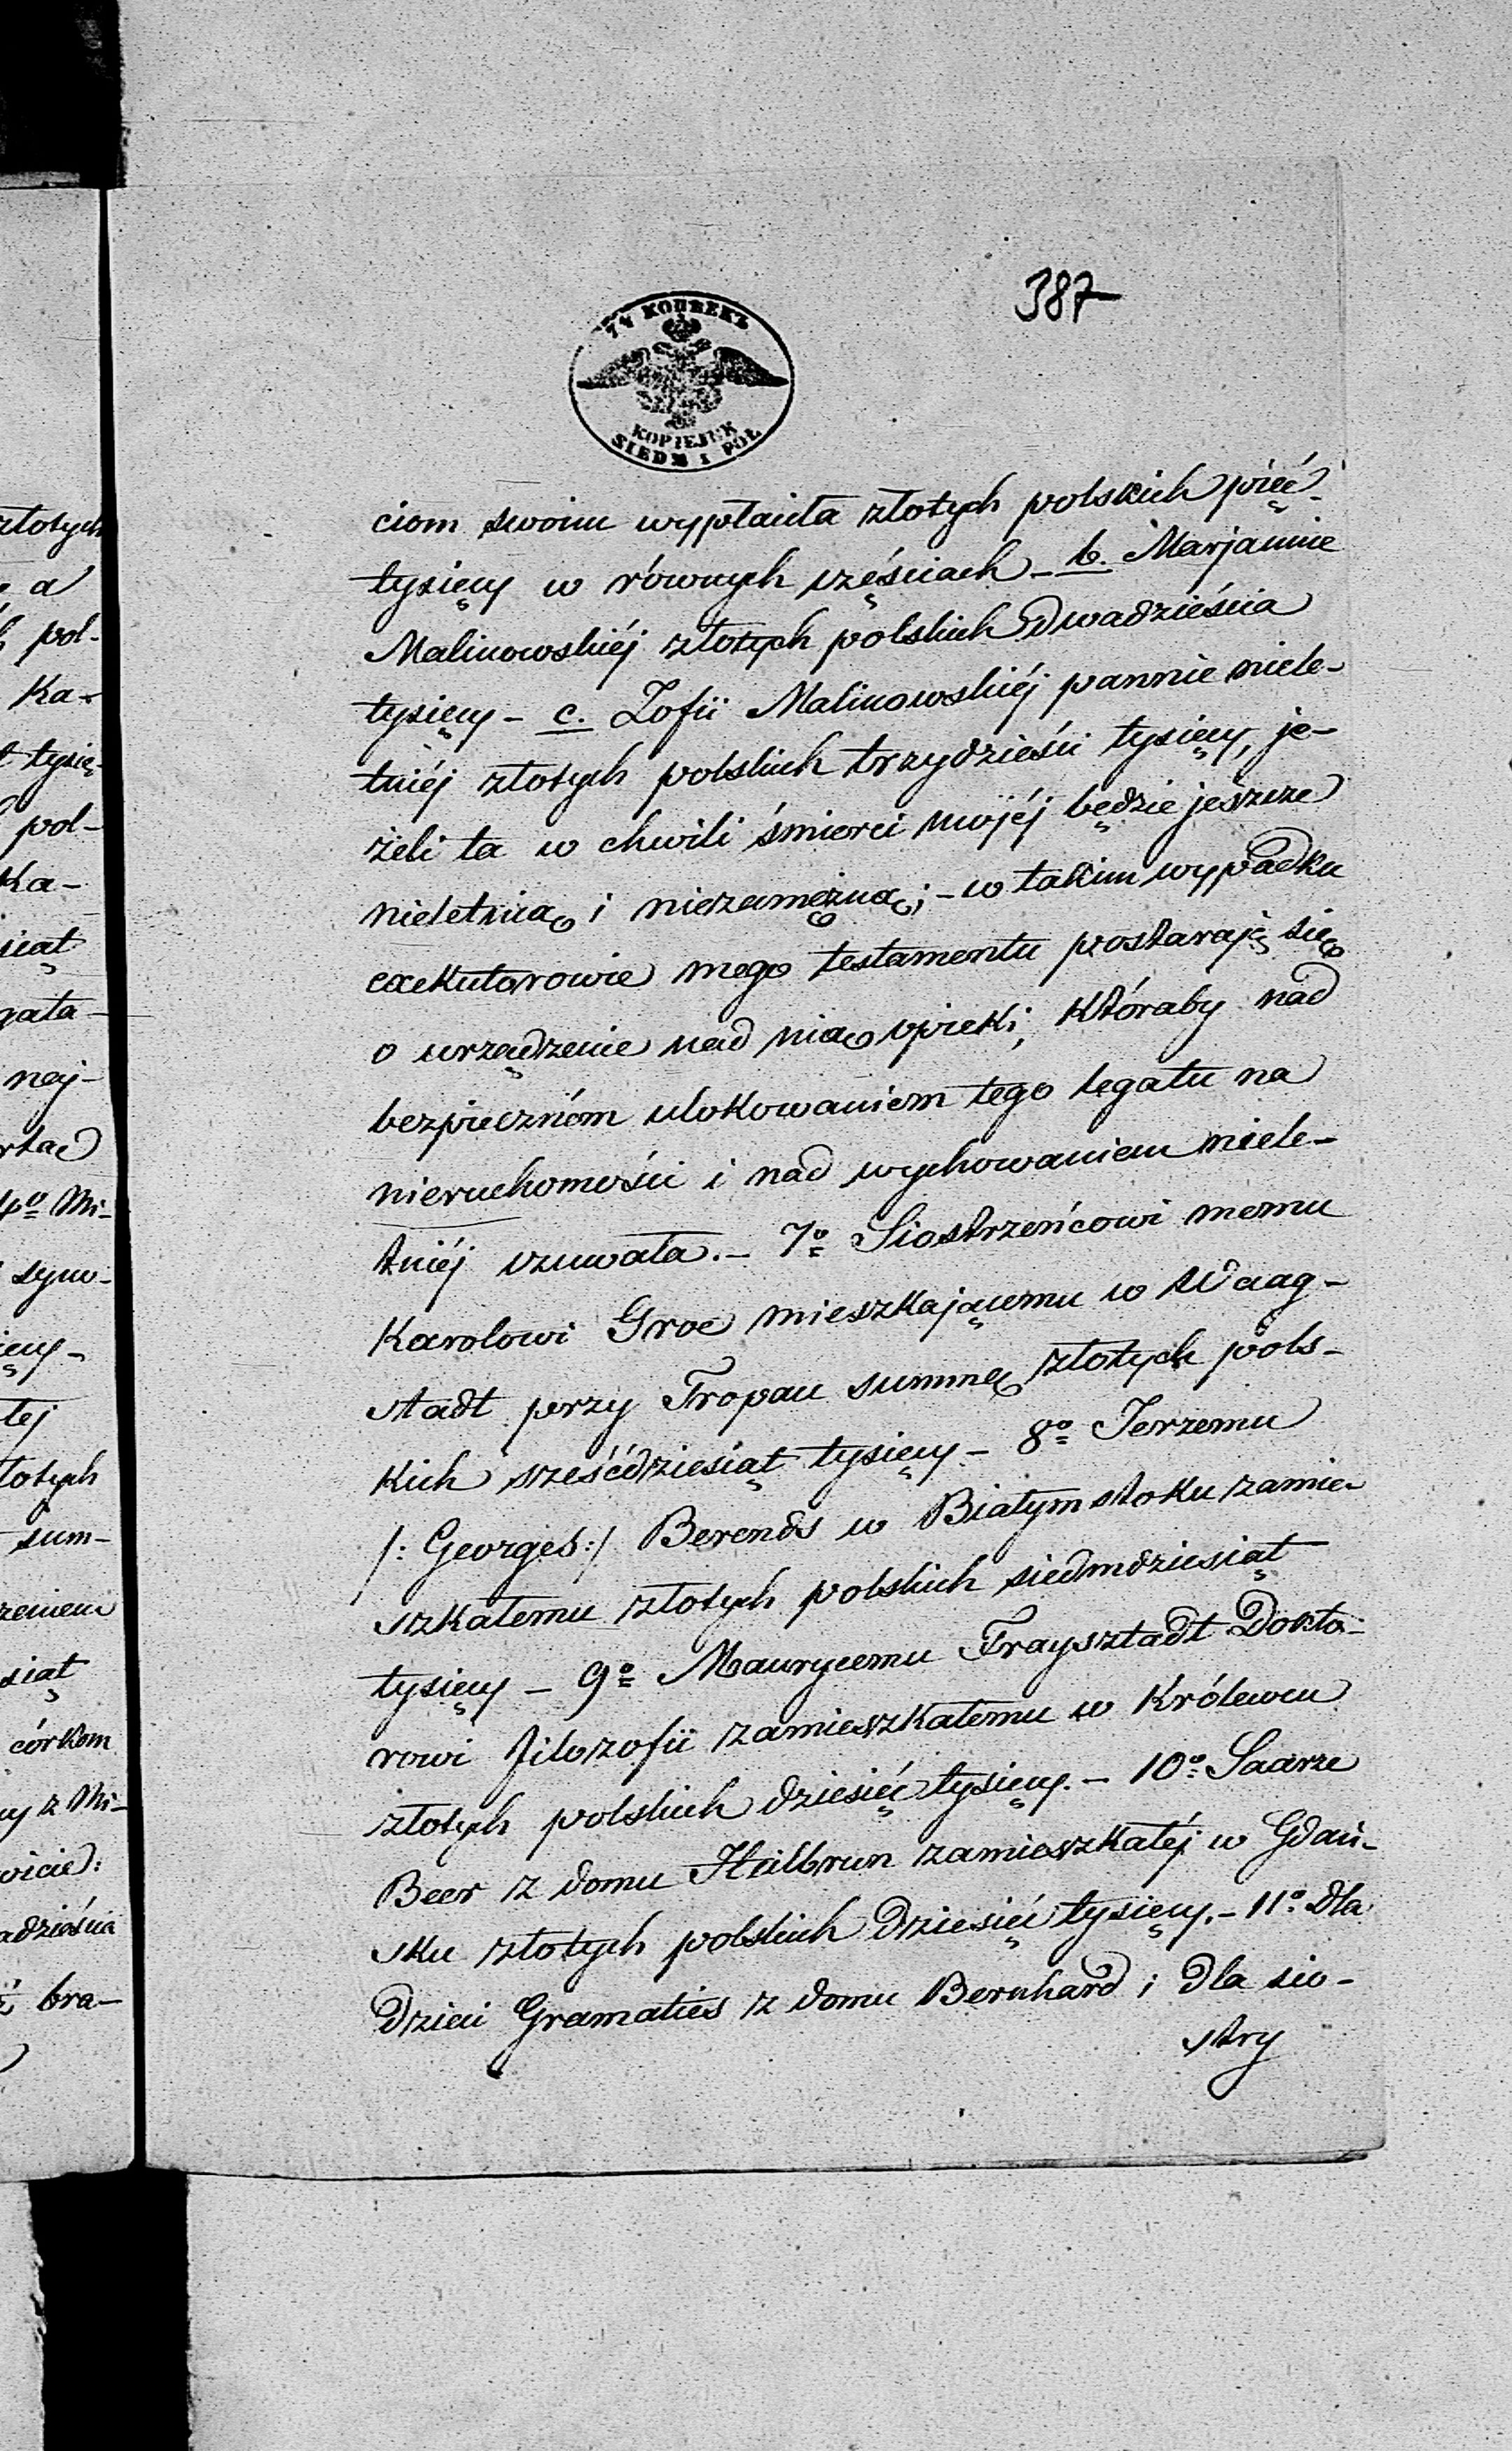 387
7½ КОПѢЕКЪ
KOPIEJEK
SIEDM I PÓŁ
złotych
a
pol-
Ka-
tysię-
pol-
Ka-
siąt
gata-
naj-
4º Mi-
syno-
tej
złotych
sum-
zeniem
siąt
córkom
z Mi-
wicie:
adzieścia
bra-
ciom swoim wypłaciła złotych polskich pięć
tysięcy w równych częściach - b. Marjannie
Malinowskiéj złotych polskich dwadzieścia
tysięcy - c. Zofii Malinowskiéj pannie niele-
tniéj złotych polskich trzydzieści tysięcy, je-
żeli ta w chwili śmierci mojéj będzie jeszcze
nieletnią i niezamężną; - w takim wypadku
exekutorowie mego testamentu postarają się
o urządzenie nad nią opieki, któraby nad
bezpieczném ulokowaniem tego legatu na
nieruchomości i nad wychowaniem niele-
tniéj czuwała. - 7º Siostrzeńcowi memu
Karolowi Groe mieszkającemu w Waag-
stadt przy Tropau summę złotych pols-
kich sześćdziesiąt tysięcy - 8º Jerzemu
/: Georges :/ Berends w Białymstoku zamie-
szkałemu złotych polskich siedmdziesiąt
tysięcy - 9º Maurycemu Fraysztadt Dokto-
rowi filozofii zamieszkałemu w Królewcu
złotych polskich dziesięć tysięcy. - 10º Saarze
Beer z domu Heilbrun zamieszkałéj w Gdań-
sku złotych polskich dziesięć tysięcy. - 11º dla
dzieci Gramaties z domu Bernhard i dla sio-
stry